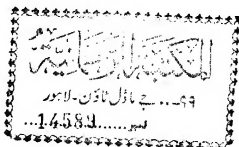 المكتبة الرحمانية
۹۹... جے ماڈل ٹاؤن - لاہور
نمبر......14583...